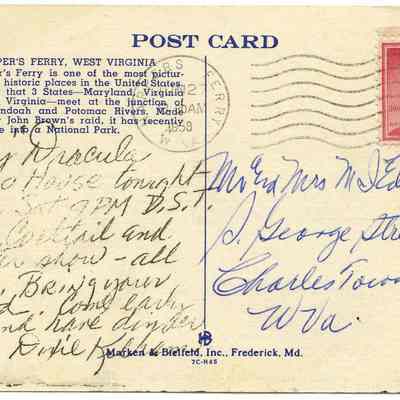 POST CARD
PER'S FERRY, WEST VIRGINIA
r's Ferry is one of the most pictur-
historic places in the United States.
that 3 States—Maryland, Virginia
Virginia—meet at the junction of
ndoah and Potomac Rivers. Made
John Brown's raid, it has recently
e into a National Park.
FERRY
AM
1958
W.VA.
Dracula
House tonight
Sat 9 PM D.S.T.
Cocktail and
show - all
Bring your
come early
and have dinner
Dixie
Mr and Mrs M J Ed
S. George Stre
Charles Town
W Va
HB
Marken & Bielfeld, Inc., Frederick, Md.
7C-H65